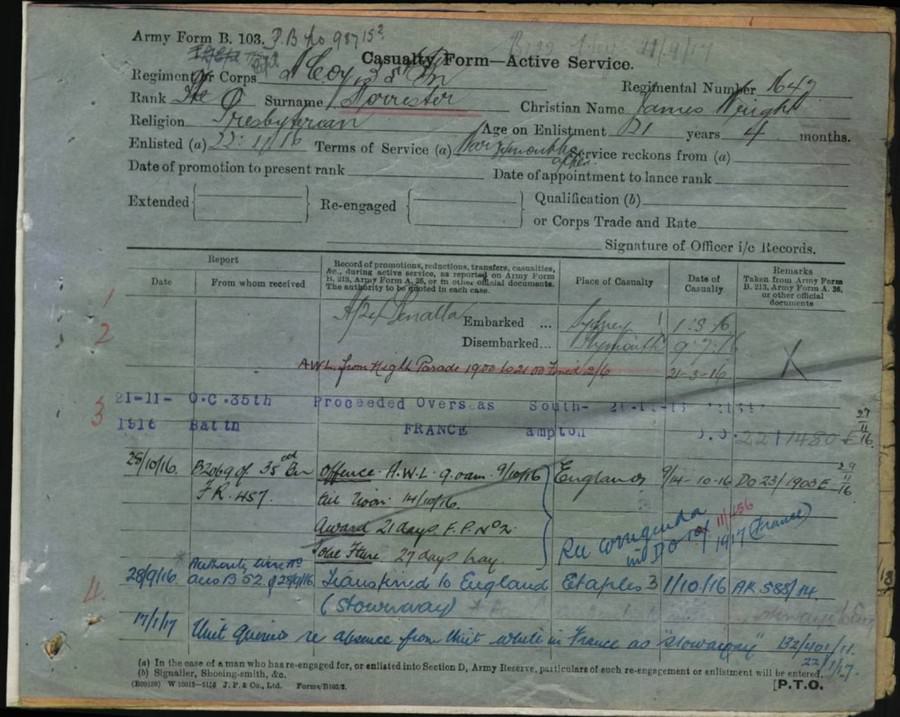 Army Form B. 103. P.B No 98715²
21/9/17
Casualty Form—Active Service.
Regiment or Corps D Coy, 35 Bn Regimental Number 1647
Rank Pte Surname Forrester Christian Name James Wright
Religion Presbyterian Age on Enlistment 21 years 4 months.
Enlisted (a) Terms of Service (a) War, 4 months after. Service reckons from (a)
Date of promotion to present rank Date of appointment to lance rank
Extended Re-engaged Qualification (b)
or Corps Trade and Rate
Signature of Officer i/c Records.
Report
Date From whom received
Record of promotions, reductions, transfers, casualties,
&c., during active service, as reported on Army Form
B. 213, Army Form A. 36, or in other official documents.
The authority to be quoted in each case.
Place of Casualty
Date of
Casualty
Remarks
Taken from Army Form
B. 213, Army Form A. 36,
or other official
documents
1
2 Benalla Embarked ... Sydney 1.5.16
Disembarked... Plymouth 9.7.16
A W L from Night Parade 1900 to 2100 Fined 2/6 21-3-16 X
3 21-11- O.C. 35th Proceeded Overseas South-
1916 Battn FRANCE ampton 27/11/16
25/10/16. B2069 of 35 Bn Offence. A.W.L. 9.0am. 9/10/16 England 9/14-10-16 DO 23/1903 E 29/11/16
F.R. 457. till Noon 14/10/16.
Award 21 days F.P. No 2.
Total Forfeiture 27 days pay
Re corrigenda in DO 1917 (France)
4. 28/9/16 Transferred to England Etaples 3 1/10/16 AR 588/14.
(Stowaway)
17/1/17 Unit Queries re absence from Unit while in France as "Stowaway" B2/401/11.
22/1/17.
(a) In the case of a man who has re-engaged for, or enlisted into Section D, Army Reserve, particulars of such re-engagement or enlistment will be entered.
(b) Signaller, Shoeing-smith, &c.
J. P. & Co., Ltd. Forms/B103/2. [P.T.O.